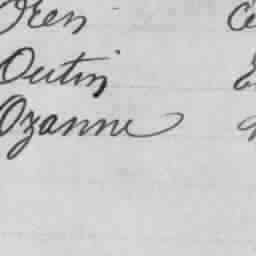 Oren
Outin
Ozanne